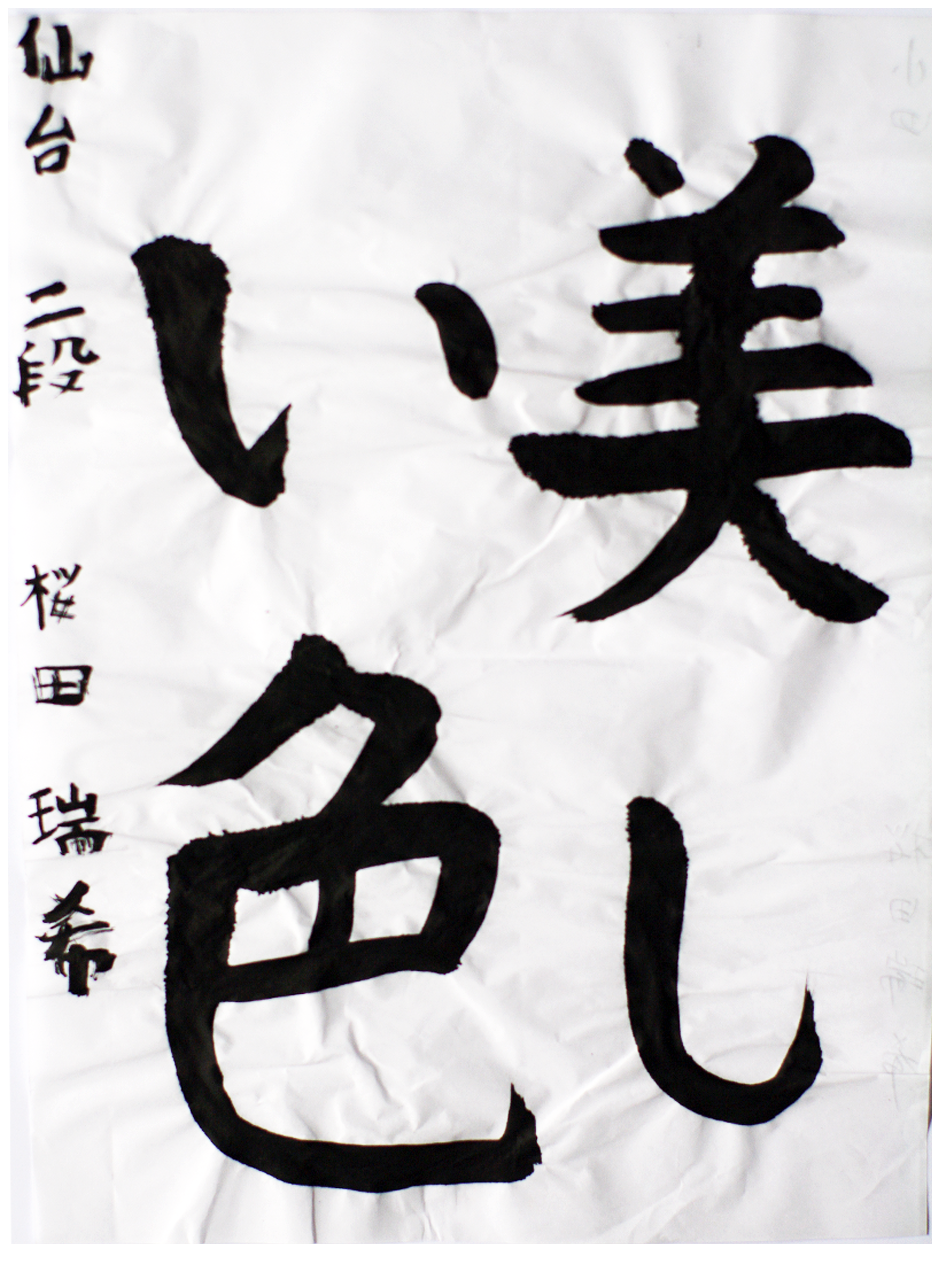 美し
い色
仙台 二段 桜田 瑞希